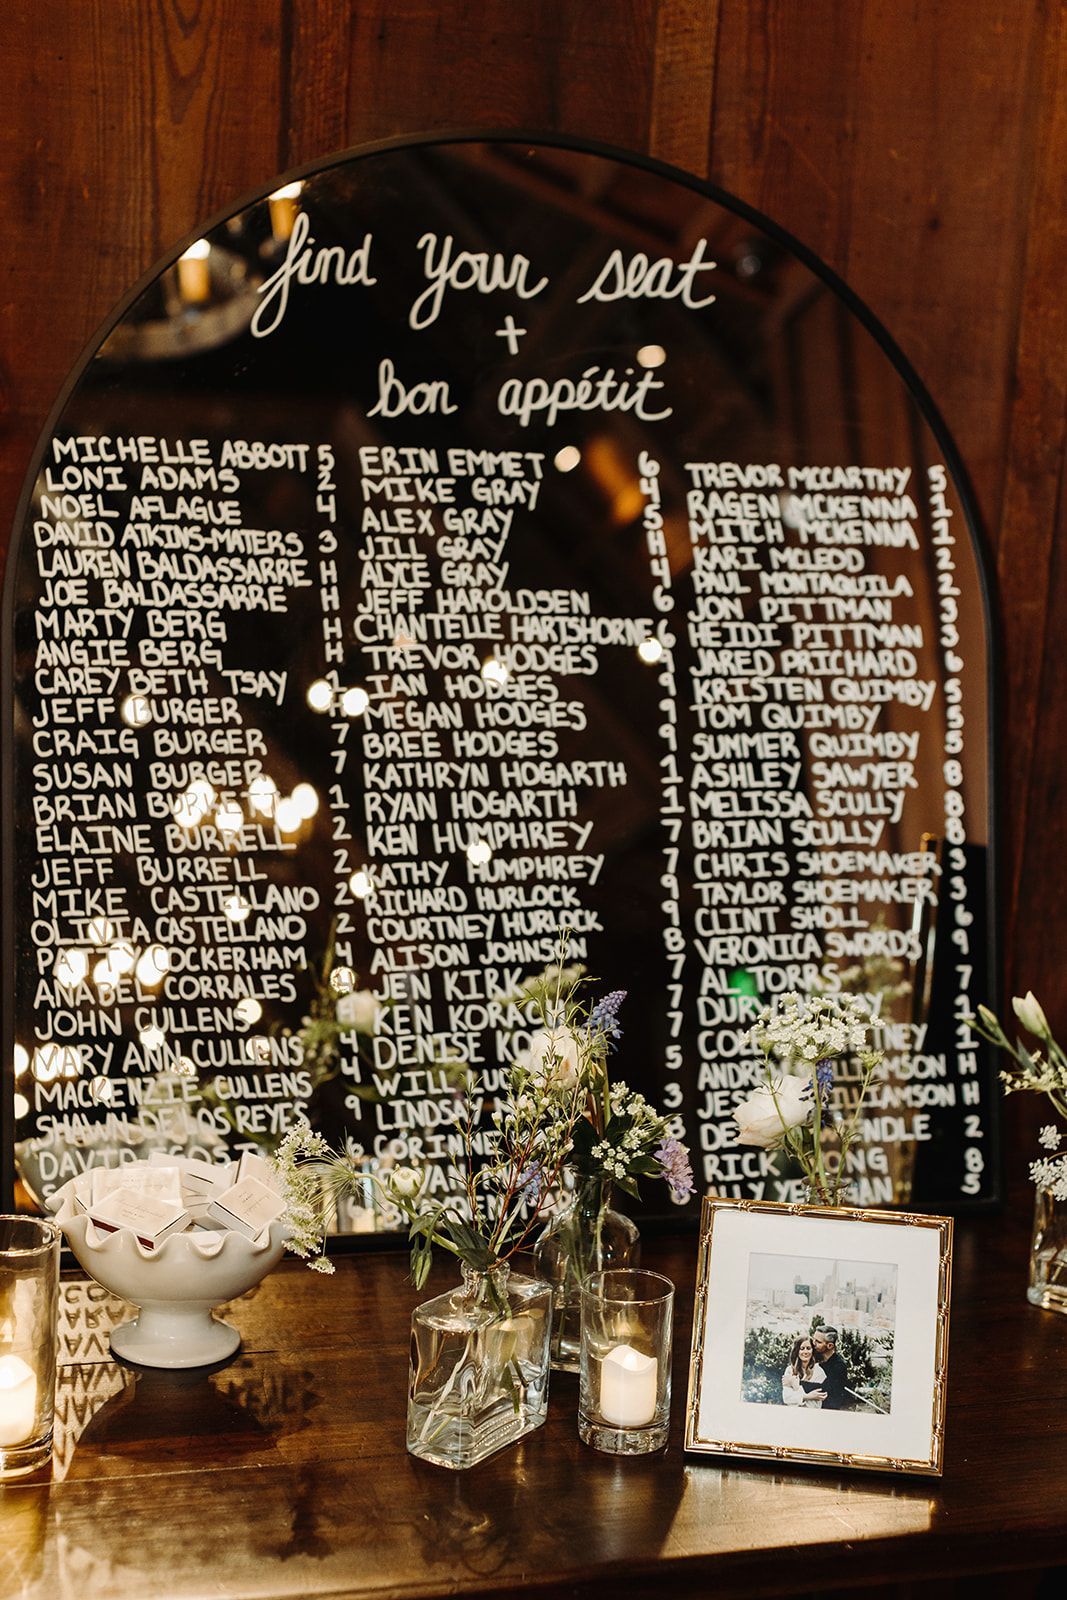 find your seat
+
bon appétit
MICHELLE ABBOTT 5
LONI ADAMS 2
NOEL AFLAGUE 4
DAVID ATKINS-MATERS 3
LAUREN BALDASSARRE H
JOE BALDASSARRE H
MARTY BERG H
ANGIE BERG H
CAREY BETH TSAY 1
JEFF BURGER H
CRAIG BURGER 7
SUSAN BURGER 7
BRIAN BURKETT 1
ELAINE BURRELL 2
JEFF BURRELL 2
MIKE CASTELLANO 2
OLIVIA CASTELLANO 2
PATTY COCKERHAM 4
ANABEL CORRALES 4
JOHN CULLENS
MARY ANN CULLENS 4
MACKENZIE CULLENS 4
SHAWN DE LOS REYES 9
DAVID 6
ERIN EMMET 6
MIKE GRAY 4
ALEX GRAY 5
JILL GRAY H
ALYCE GRAY 4
JEFF HAROLDSEN 6
CHANTELLE HARTSHORNE 6
TREVOR HODGES 9
IAN HODGES 9
MEGAN HODGES 9
BREE HODGES 9
KATHRYN HOGARTH 1
RYAN HOGARTH 1
KEN HUMPHREY 7
KATHY HUMPHREY 7
RICHARD HURLOCK 9
COURTNEY HURLOCK 9
ALISON JOHNSON 8
JEN KIRK 7
KEN 7
DENISE 7
WILL 5
LINDSAY 3
CORINNE 8
TREVOR MCCARTHY 5
RAGEN MCKENNA 1
MITCH MCKENNA 1
KARI MCLEOD 2
PAUL MONTAQUILA 2
JON PITTMAN 3
HEIDI PITTMAN 3
JARED PRICHARD 6
KRISTEN QUIMBY 5
TOM QUIMBY 5
SUMMER QUIMBY 5
ASHLEY SAWYER 8
MELISSA SCULLY 8
BRIAN SCULLY 8
CHRIS SHOEMAKER 3
TAYLOR SHOEMAKER 3
CLINT SHOLL 6
VERONICA SWORDS 9
AL TORRS 7
1
1
WILLIAMSON H
WILLIAMSON H
2
RICK 8
8